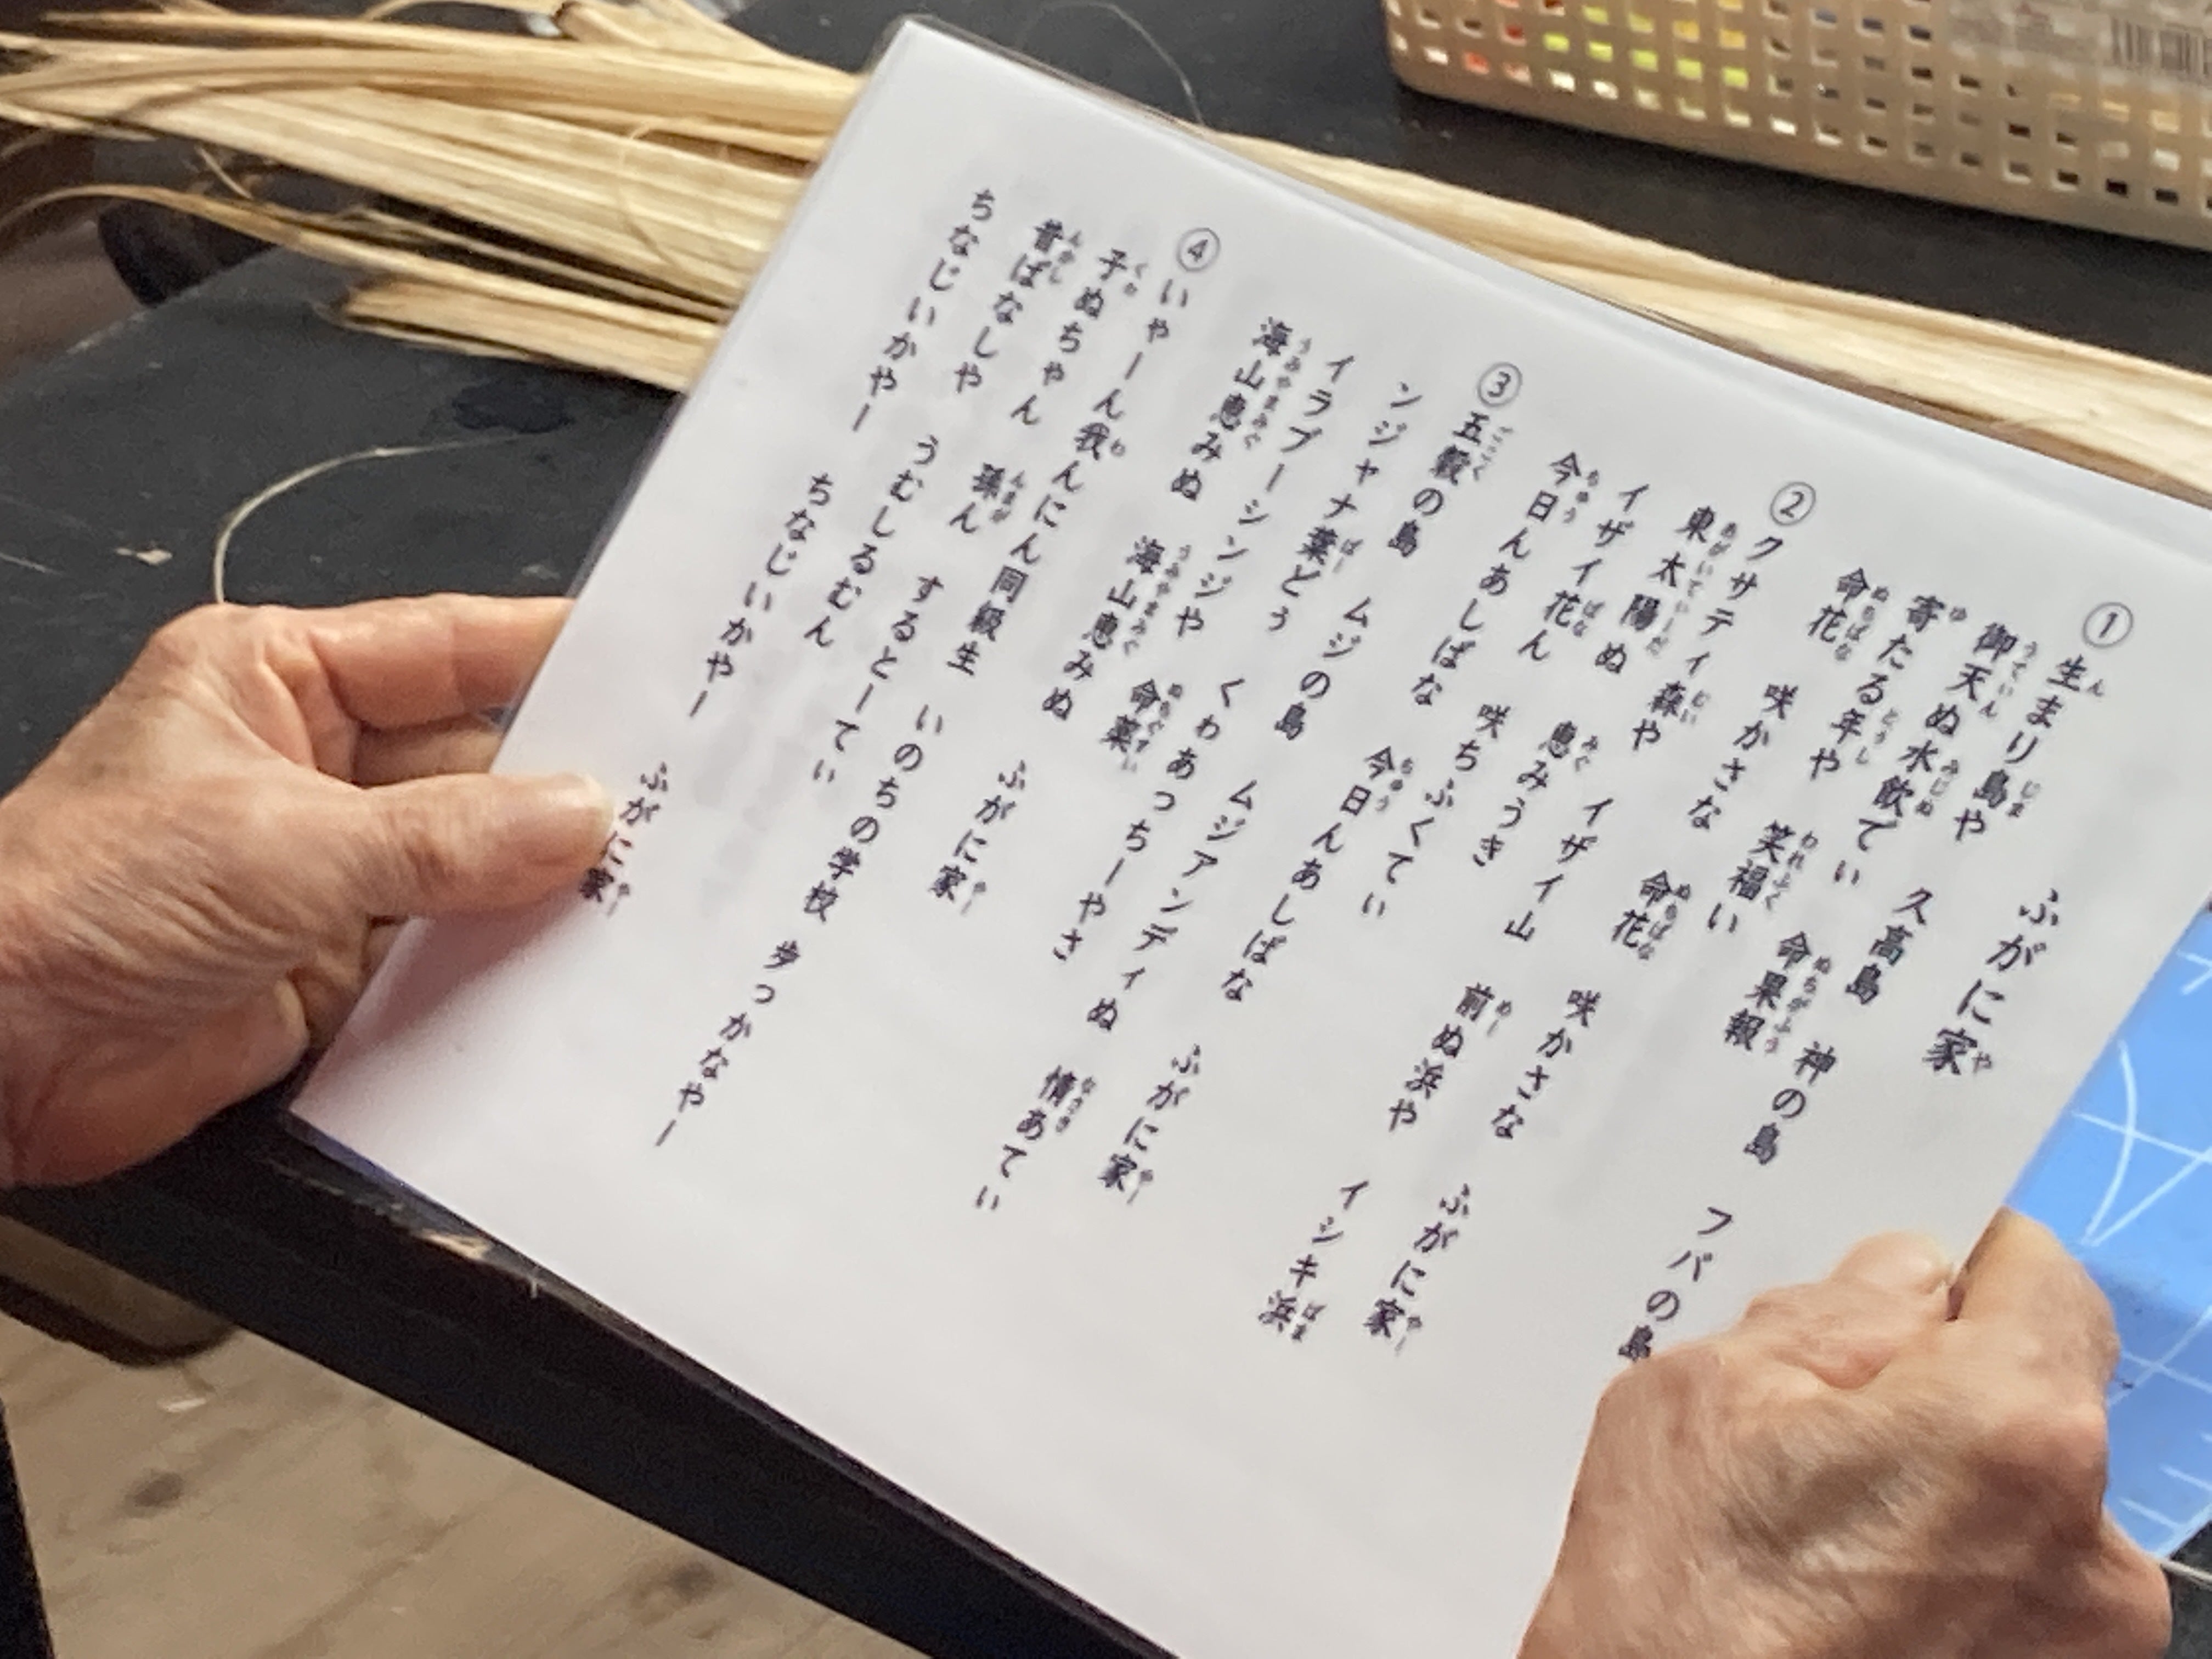 ふがに家
① 生まり島や 久高島 神の島 フバの島
御天ぬ水飲てい 命果報
寄たる年や 笑福い
命花 咲かさな 命花 咲かさな ふがに家
② クサティ森や イザイ山 前ぬ浜や イシキ浜
東太陽ぬ 恵みうき
イザイ花ん 咲ちふくてい
今日んあしばな 今日んあしばな ふがに家
③ 五穀の島 ムジの島 ムジアンディぬ 情あてい
ンジャナ葉どぅ くわあっちーやさ
イラブーシンジや 命薬
海山恵みぬ 海山恵みぬ ふがに家
④ いやーん我んにん同級生 いのちの学校 歩っかなやー
子ぬちゃん 孫ん するとーてい
昔ばなしや うむしるむん
ちなじいかやー ちなじいかやー ふがに家